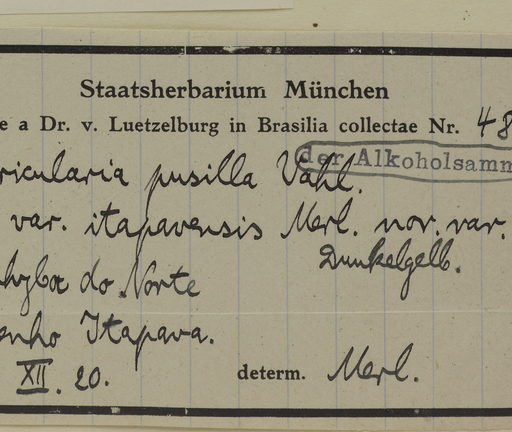 Staatsherbarium München
e a Dr. v. Luetzelburg in Brasilia collectae Nr. 48
der Alkoholsamm
ricularia pusilla Vahl.
var. itapavensis Merl. nov. var.
Dunkelgelb.
do Norte
enho Itapava.
XII. 20.
determ. Merl.